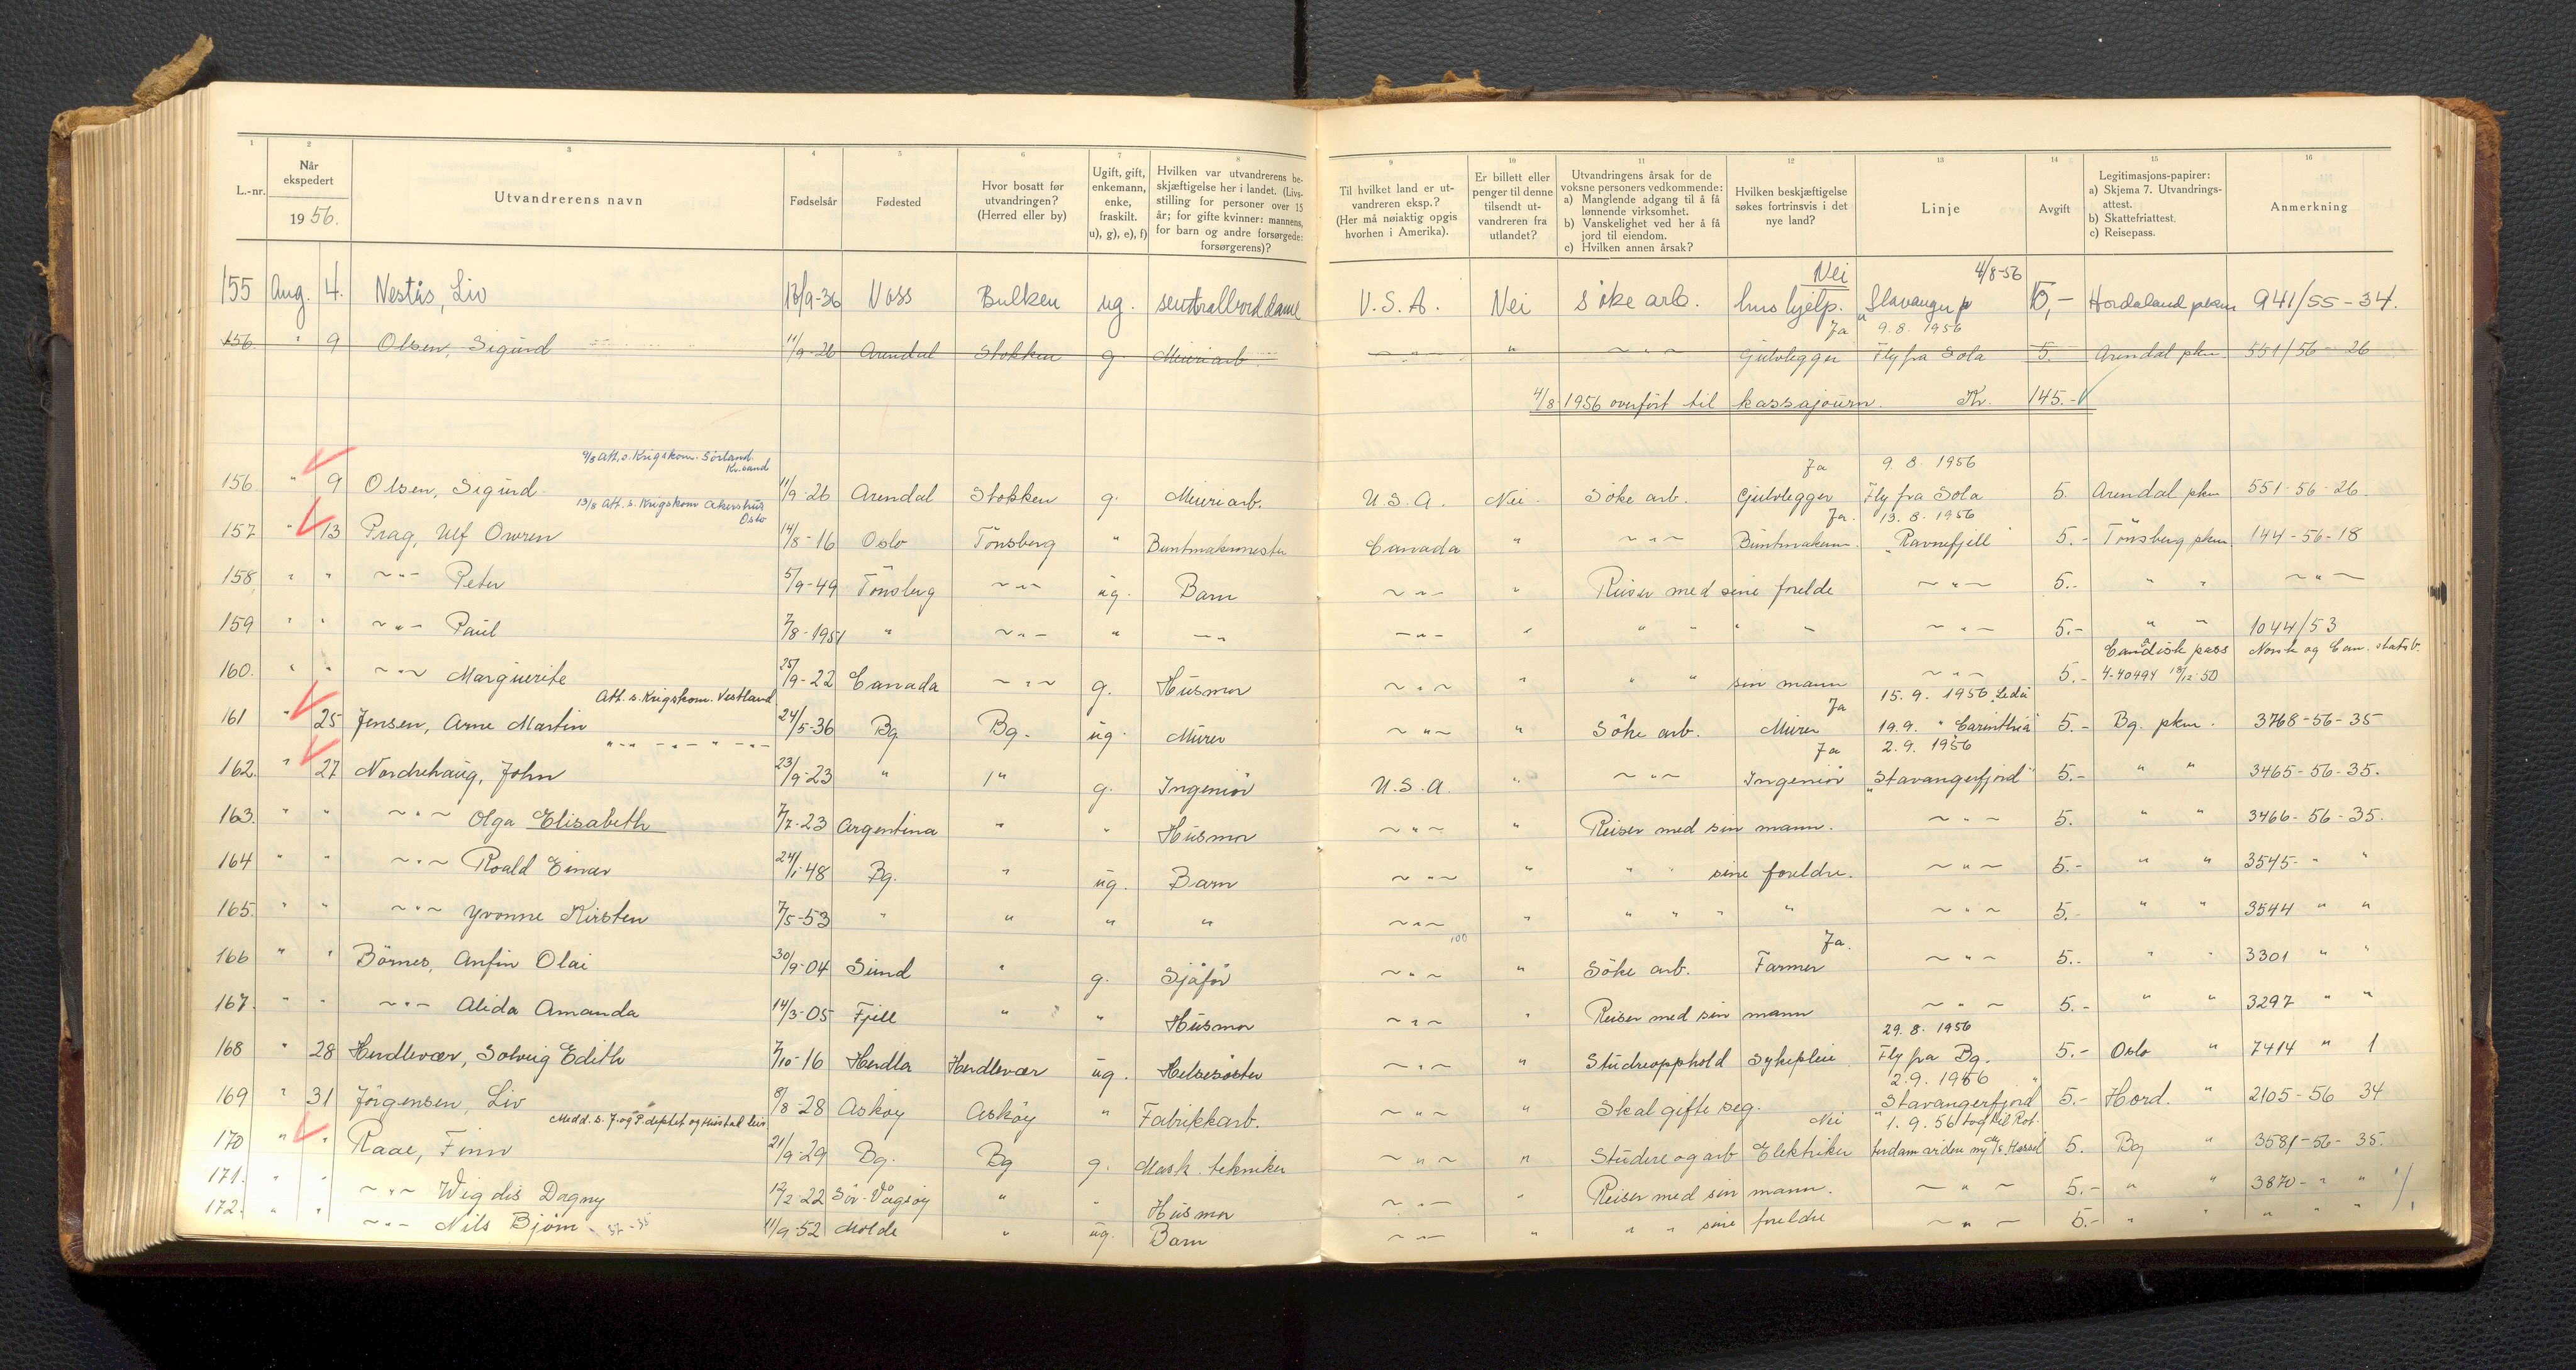 1 2 3 4 5 6 7 8 9 10 11 12 13 14 15 16
L.-nr.
Når
ekspedert
1956.
Utvandrerens navn
Fødselsår
Fødested
Hvor bosatt før
utvandringen?
(Herred eller by)
Ugift, gift,
enkemann,
enke,
fraskilt.
u), g), e), f)
Hvilken var utvandrerens be-
skjæftigelse her i landet. (Livs-
stilling for personer over 15
år; for gifte kvinner: mannens,
for barn og andre forsørgede:
forsørgerens)?
Til hvilket land er ut-
vandreren eksp.?
(Her må nøiaktig opgis
hvorhen i Amerika).
Er billett eller
penger til denne
tilsendt ut-
vandreren fra
utlandet?
Utvandringens årsak for de
voksne personers vedkommende:
a) Manglende adgang til å få
lønnende virksomhet.
b) Vanskelighet ved her å få
jord til eiendom.
c) Hvilken annen årsak?
Hvilken beskjæftigelse
søkes fortrinsvis i det
nye land?
Linje
Avgift
Legitimasjons-papirer:
a) Skjema 7. Utvandrings-
attest.
b) Skattefriattest.
c) Reisepass.
Anmerkning
Nei 4/8-56
155 Aug. 4. Nestås, Liv 13/9-36 Voss Bulken ug. sentralborddame U.S.A. Nei søke arb. hushjelp. "Stavangerfj 5,- Hordaland pkm 941/55-34.
Ja 9.8.1956
156. " 9 Olsen, Sigurd 11/9-26 Arendal Stokken g. Meieriarb. ~"~ " ~"~ Gulvlegger Fly fra Sola 5. Arendal pkm 551/56-26
4/8 1956 overført til kassajourn. Kr. 145.-
9/8 Att. s. Krigskom. Sørland.
Kr.sand
Ja 9.8 1956
156. " 9 Olsen, Sigurd 11/9-26 Arendal Stokken g. Meieriarb. U.S.A. Nei Søke arb. Gulvlegger Fly fra Sola 5. Arendal pkm 551-56-26
13/8 Att. s. Krigskom Akershus
Oslo
Ja. 13.8.1956
157 " 13 Prag, Ulf Owren 14/8-16 Oslo Tønsberg " Buntmakermester Canada " ~"~ Buntmaker. "Ravnefjell" 5.- Tønsberg pkm 144-56-18
158 " " ~"~ Peter 5/9-49 Tønsberg ~"~ ug. Barn ~"~ " Reiser med sine forelde ~"~ 5.- " " ~"~
159 " " ~"~ Paul 7/8-1951 " ~"~ " ~"~ ~"~ " " " " " ~"~ 5.- " " 1044/53
Canadisk pass Norsk og Can. statsb.
160. " " ~"~ Marguerite 25/9-22 Canada ~"~ g. Husmor ~"~ " " " sin mann ~"~ 5.- 4-40494 13/12-50
Att. s. Krigskom. Vestland
Ja 15.9.1956 "Leda"
161 " 25 Jensen, Arne Martin 24/5-36 Bg. Bg. ug. Murer ~"~ " Søke arb. Murer 19.9. "Carinthia" 5.- Bg. pkm. 3768-56-35
"-" -"- " -"-
Ja 2.9.1956
162. " 27 Nordrehaug, John 23/9-23 " " g. Ingeniør U.S.A. " ~"~ Ingeniør "Stavangerfjord" 5.- " " 3465-56-35.
163. " " ~"~ Olga Elisabeth 7/7-23 Argentina " " Husmor ~"~ " Reiser med sin mann. ~"~ 5. " " 3466-56-35.
164 " " ~"~ Roald Einar 24/1-48 Bg. " ug. Barn ~"~ " " " sine foreldre. ~"~ 5.- " " 3545- " "
165. " " ~"~ Yvonne Kirsten 7/5-53 " " " " ~"~ " " " " " ~"~ 5. " " 3544 " "
100 Ja.
166 " " Børnes, Anfin Olai 30/9-04 Sund " g. Sjåfør ~"~ " Søke arb. Farmer ~"~ 5.- " " 3301 " "
167. " " ~"~ Alida Amanda 14/3-05 Fjell " " Husmor ~"~ " Reiser med sin mann ~"~ 5.- " " 3297 " "
29.8.1956
168 " 28 Herdlevær, Solveig Edith 7/10-16 Herdla Herdlevær ug. Helsesøster ~"~ " Studieopphold Sykepleie Fly fra Bg. 5.- Oslo " 7414 " 1
2.9.1956
169 " 31 Jørgensen, Liv 8/8-28 Askøy Askøy " Fabrikkarb. ~"~ " Skal gifte seg. "Stavangerfjord" 5.- Hord. " 2105-56 34
Medd. s. J. og P. deptet og
Nei 1.9.56 tog til Rot.
170 " " Raae, Finn 21/9-29 Bg. Bg g. Mask. tekniker ~"~ " Studere og arb Elektriker terdam videre m/ 5. Bg " 3581-56-35.
171. " " ~"~ Wigdis Dagny 12/2-22 Sør-Vågsøy " " Husmor ~"~ " Reiser med sin mann. ~"~ 5.- " " 3870- " "
172. " " ~"~ Nils Bjørn 11/9-52 Molde " ug. Barn ~"~ " " " sine foreldre ~"~ 5.- " " " " "